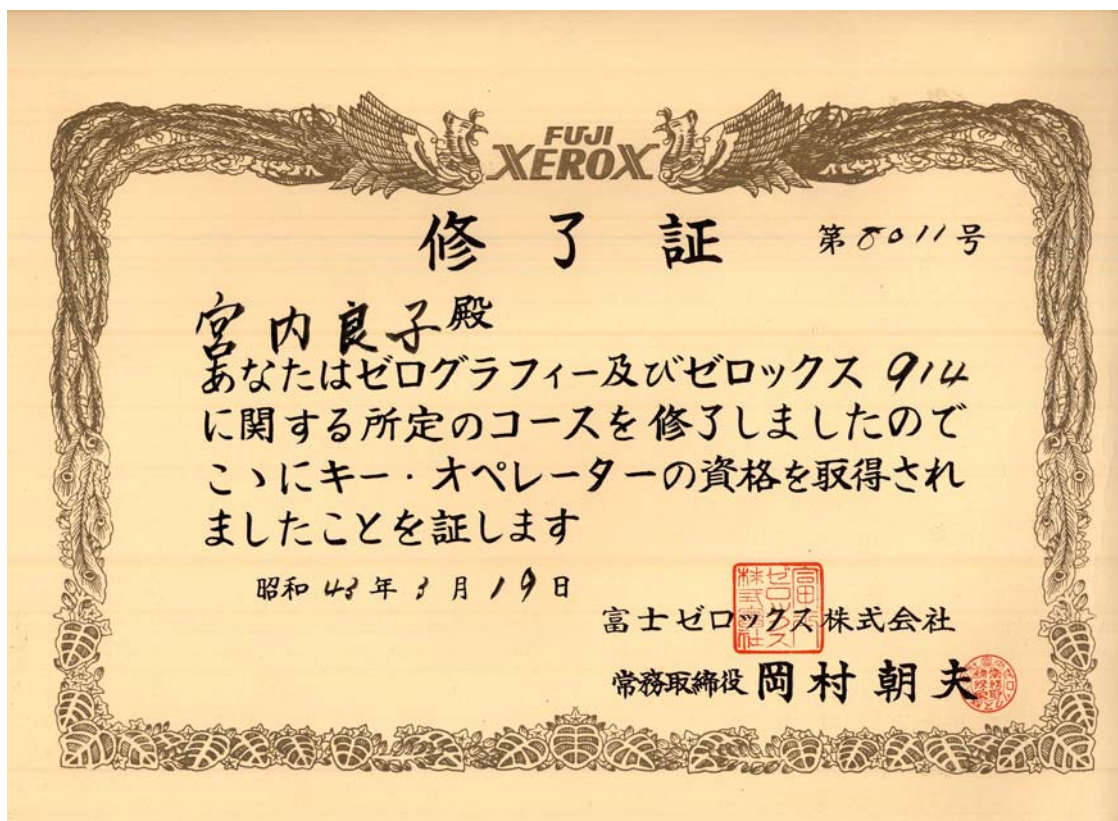 FUJI
XEROX
修了証
第8011号
宮内良子殿
あなたはゼログラフィー及びゼロックス 914
に関する所定のコースを修了しましたので
こゝにキー・オペレーターの資格を取得され
ましたことを証します
昭和43年3月19日
富士ゼロックス株式会社
富士ゼロックス株式会社
常務取締役 岡村朝夫